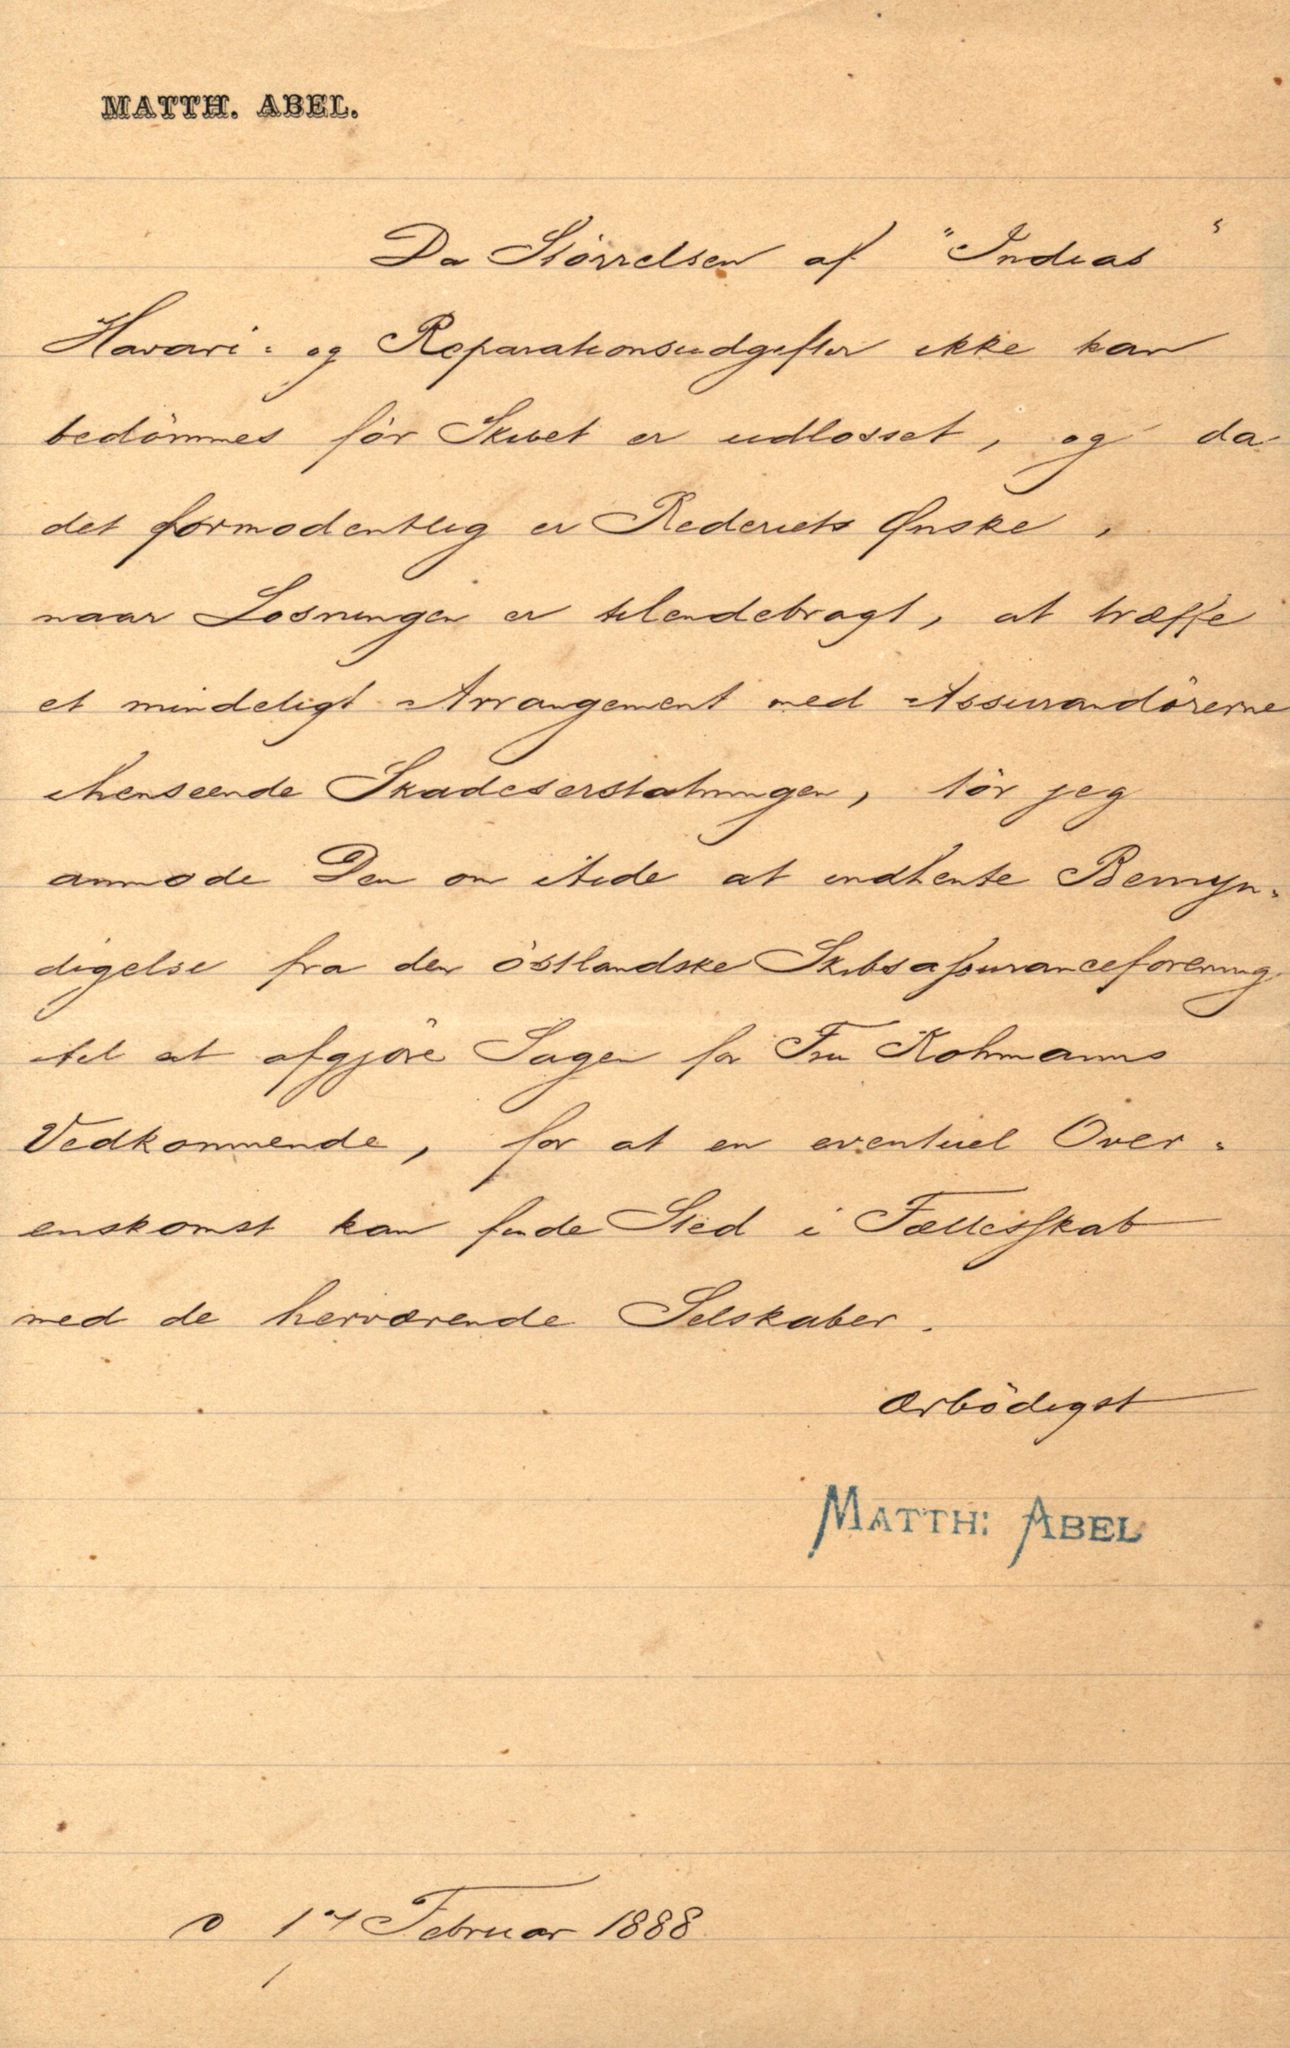 MATTH. ABEL.
Da Störrelsen af "Indias"
Havari- og Reparationsudgifter ikke kan
bedömmes för Skibet er udlosset, og da
det formodentlig er Rederiets Ønske,
naar Losningen er tilendebragt, at træffe
et mindeligt Arrangement med Assurandörerne
ihenseende Skadeserstatningen, tör jeg
anmode Dem om itide at indhente Bemyn-
digelse fra den östlandske Skibsassuranceforening
til at afgjöre Sagen for Fru Kohmanns
Vedkommende, for at en eventuel Over-
enskomst kan finde Sted i Fællesskab
med de herværende Selskaber.
Ærbödigst
MATTH: ABEL
17 Februar 1888